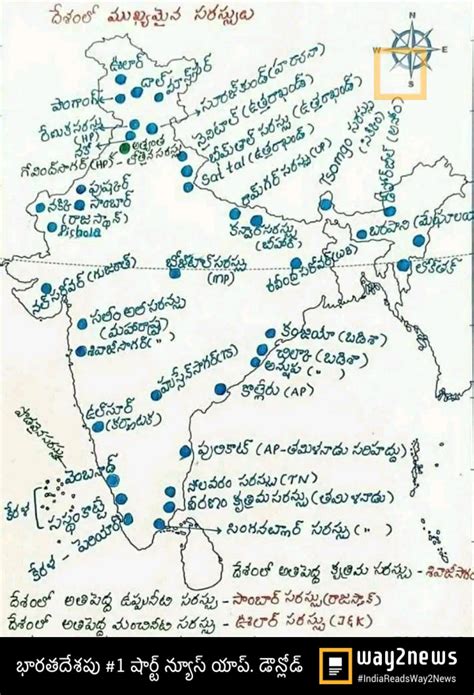 దేశంలో ముఖ్యమైన సరస్సులు
N
W
E
S
ఊలార్
దాల్
పాంగాంగ్
సూరజ్‌కుండ్ (హర్యానా)
నైనిటాల్ (ఉత్తరాఖండ్)
భీమ్‌తాల్ సరస్సు (ఉత్తరాఖండ్)
Sattal (ఉత్తరాఖండ్)
రేణుక సరస్సు
(HP)
గోవింద్‌సాగర్ (HP)
రామ్‌గర్ సరస్సు (UP)
Tsomgo సరస్సు
(సిక్కిం)
పుష్కర్
నక్కి
సాంబార్
(రాజస్థాన్)
Pichola
కన్వర్ సరస్సు
(బీహార్)
బరపాని (మేఘాలయ)
లోక్‌తక్
నల్ సరోవర్ (గుజరాత్)
(MP)
రవీంద్ర సరోవర్ (WB)
సలీం అలీ సరస్సు
(మహారాష్ట్ర)
శివాజీసాగర్ ( " )
హుస్సేన్‌సాగర్ (TS)
కంజియా (ఒడిశా)
చిల్కా (ఒడిశా)
అన్షుప ( " )
కొల్లేరు (AP)
ఉల్‌సూర్
(కర్ణాటక)
పులికాట్ (AP-తమిళనాడు సరిహద్దు)
వెంబనాడ్
కేరళ
కేరళ - పెరియార్
సరస్సు (TN)
వీరణం కృత్రిమ సరస్సు (తమిళనాడు)
సింగనల్లూర్ సరస్సు ( " )
దేశంలో అతిపెద్ద కృత్రిమ సరస్సు - శివాజీసాగర్
దేశంలో అతిపెద్ద ఉప్పునీటి సరస్సు - సాంబార్ సరస్సు (రాజస్థాన్)
దేశంలో అతిపెద్ద మంచినీటి సరస్సు - ఊలార్ సరస్సు (J&K)
భారతదేశపు #1 షార్ట్ న్యూస్ యాప్. డౌన్లోడ్
way2news
#IndiaReadsWay2News